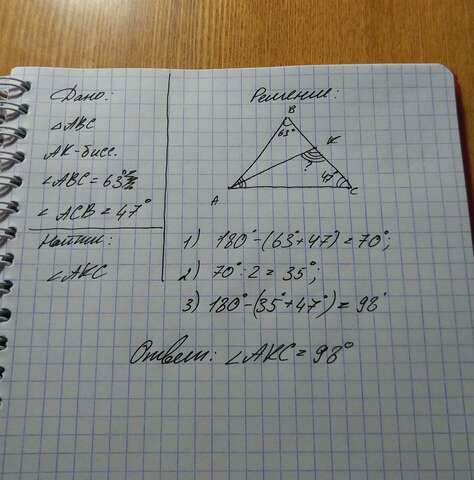 Дано:
△ABC
AK-бисс.
∠ABC = 63°
∠ACB = 47°
Найти:
∠AKC
Решение:
B
63°
K
?
47
A
C
1) 180°-(63°+47) = 70°;
2) 70°:2 = 35°;
3) 180°-(35°+47°) = 98°
Ответ: ∠AKC = 98°